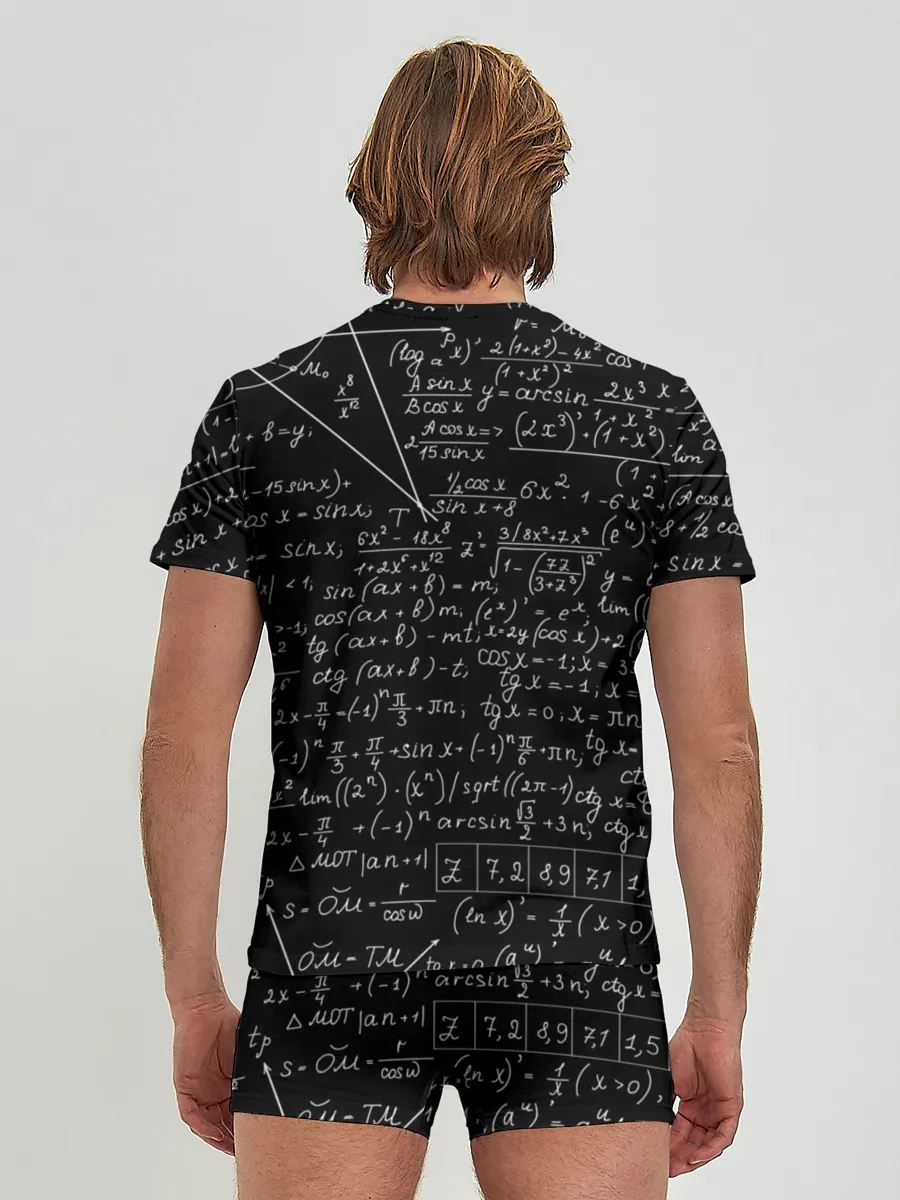 P
(log a x)' 2(1+x²)-4x² cos
(1+x²)²
M₀
x⁸
x¹²
A sin x
B cos x
y = arcsin 2x³
1+x²
(1-
+ b=y;
2 A cos x =>
15 sin x
(2x³)'+(1+x²).
lim a
-15 sin x)+
½ cos x
sin x+8
6x²: 1-6x
(A cos x
os x)+2
os x = sin x;
T
+ sin x
sin x;
6x² - 18x⁸
1+2x⁶+x¹²
z' = 3/8x²+7x³
√1-(7z/3+z³)²
(eᵘ)'
8+½ co
y =
sin x =
x| <1;
sin (ax+b) = m;
cos(ax+b)m; (eˣ)' = eˣ; lim ((
tg (ax+b) - mt; x=2y (cos x)+2
ctg (ax+b)-t; cos x=-1; x = 3
tg x=-1; x =
2x-π/4=(-1)ⁿπ/3+πn; tg x=0; x=πn
-1)ⁿ π/3+π/4+sin x+(-1)ⁿπ/6+πn; tg x=
ct
x² lim((2ⁿ)·(xⁿ)/sqrt((2π-1) ctg x=
2x-π/4 +(-1)ⁿ arcsin √3/2 +3n; ctg x
△ MOT |an+1| Z 7,2 8,9 7,1 1,
P
s = ŎM = r/cos ω
(ln x)' = 1/x (x>0)
ŎM - TM tg x=0 (aᵘ)'
2x-π/4 +(-1)ⁿ arcsin √3/2 +3n; ctg x=
△ MOT |an+1| Z 7,2 8,9 7,1 1,5
tp
s = ŎM = r/cos ω (ln x)' = 1/x (x>0),
ŎM - TM (aᵘ)' = aᵘ